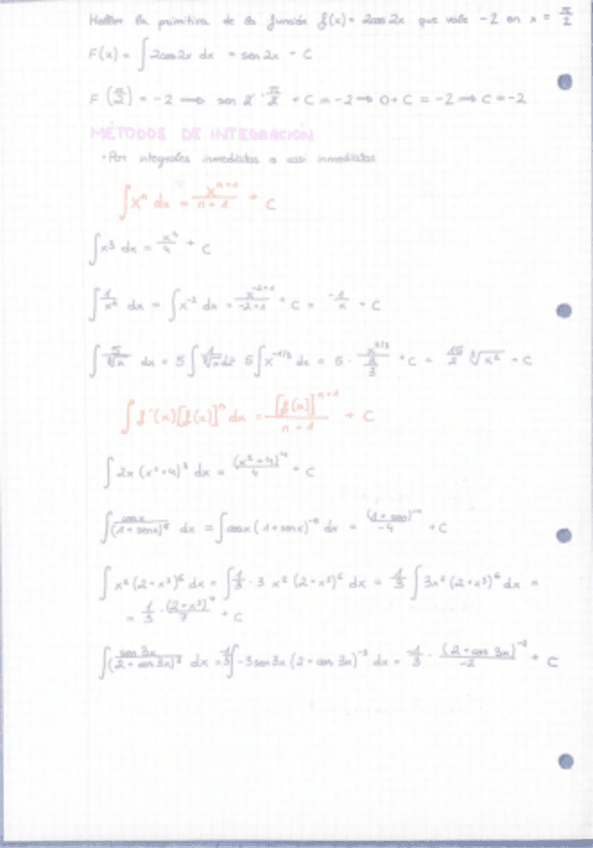 Hallar la primitiva de la función f(x) = 2cos 2x que vale -2 en x = π/2
F(x) = ∫ 2cos 2x dx = sen 2x + C
F (π/2) = -2 ⟹ sen 2 · π/2 + C = -2 ⟹ 0 + C = -2 ⟹ C = -2
MÉTODOS DE INTEGRACIÓN
· Por integrales inmediatas o casi inmediatas
∫ xⁿ dx = xⁿ⁺¹/(n+1) + C
∫ x³ dx = x⁴/4 + C
∫ 1/x² dx = ∫ x⁻² dx = x⁻²⁺¹/(-2+1) + C = -1/x + C
∫ 5/∛x dx = 5 ∫ 1/∛x dx = 5 ∫ x^(-1/3) dx = 5 · x^(2/3)/(2/3) + C = 15/2 ∛x² + C
∫ f'(x) [f(x)]ⁿ dx = [f(x)]ⁿ⁺¹/(n+1) + C
∫ 2x (x²+4)³ dx = (x²+4)⁴/4 + C
∫ cosx/(1+senx)⁵ dx = ∫ cosx (1+senx)⁻⁵ dx = (1+sen)⁻⁴/-4 + C
∫ x² (2+x³)⁶ dx = ∫ 1/3 · 3 x² (2+x³)⁶ dx = 1/3 ∫ 3x² (2+x³)⁶ dx =
= 1/3 · (2+x³)⁷/7 + C
∫ sen 3x/(2+cos 3x)³ dx = -1/3 ∫ -3 sen 3x (2+cos 3x)⁻³ dx = -1/3 · (2+cos 3x)⁻²/-2 + C